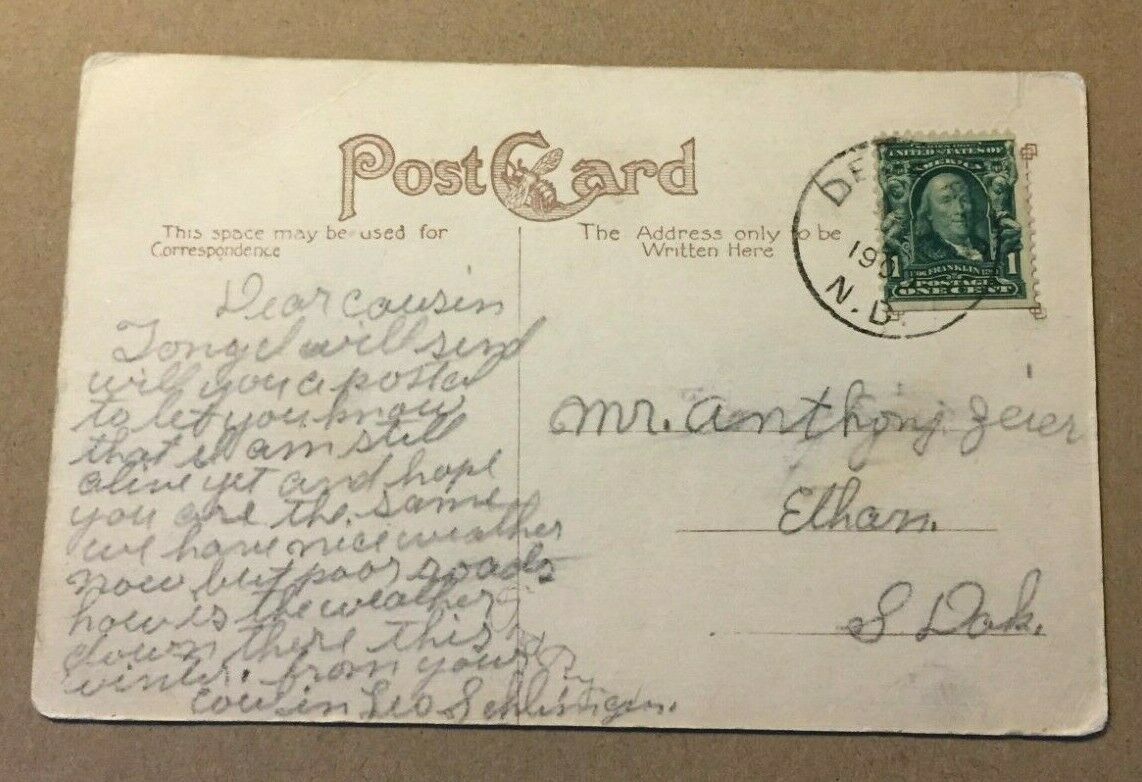 Post Card
This space may be used for
Correspondence
The Address only to be
Written Here
DE
190
N.D.
UNITED STATES OF
AMERICA
1 FRANKLIN 1
POSTAGE
ONE CENT
Dear cousin
will send
will you a postal
to let you know
that I am still
alive yet and hope
you are the same
we have nice weather
now but poor roads
how is the weather
down there this
winter. from your
cousin Leo
Mr. Anthony Zeier
Ethan.
S Dak.